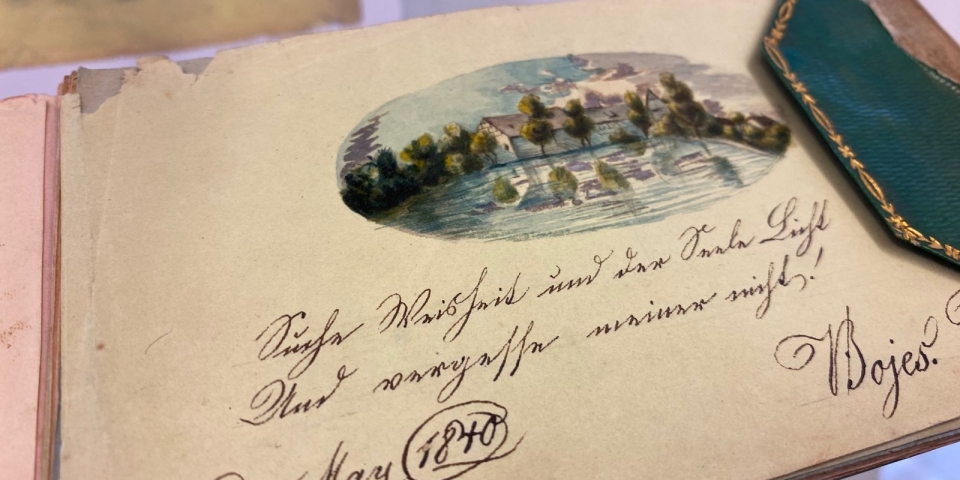 Suche Weisheit und der Seele Licht
Und vergesse meiner nicht!
Bojes.
May 1840